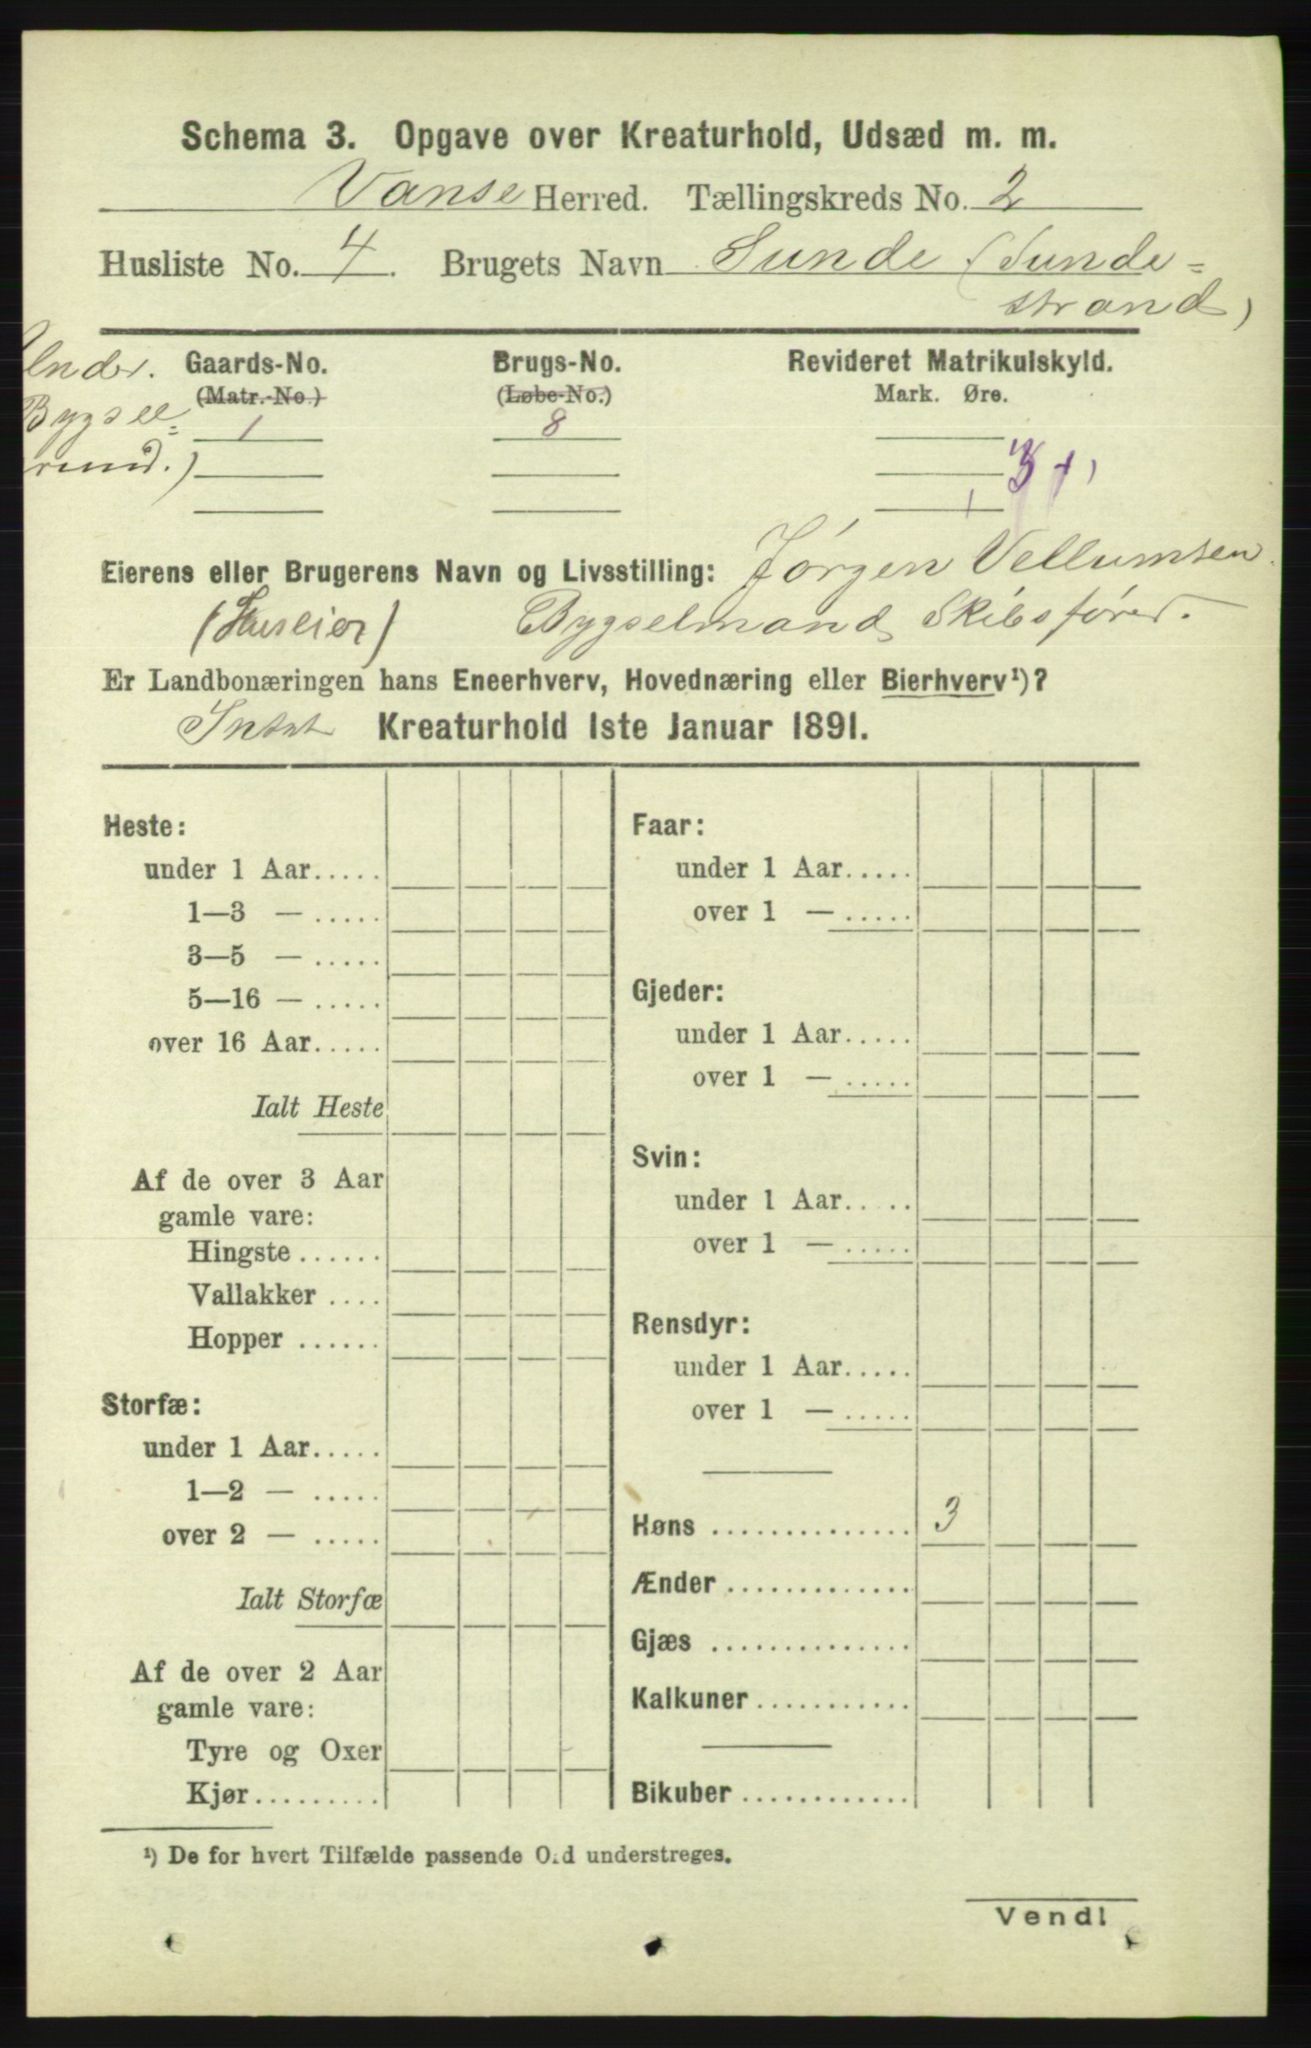 Schema 3. Opgave over Kreaturhold, Udsæd m. m.
Vanse Herred. Tællingskreds No. 2
Husliste No. 4. Brugets Navn Sunde (Sunde-
strand)
Under. Gaards-No. Brugs-No. Revideret Matrikulskyld.
Bygsel= (Matr.-No.) (Løbe-No.) Mark. Øre.
1 8
rund.)
Eierens eller Brugerens Navn og Livsstilling: Jørgen Vellumsen
(Huseier) Bygselmand Skibsfører.
Er Landbonæringen hans Eneerhverv, Hovednæring eller Bierhverv¹)?
Intet Kreaturhold 1ste Januar 1891.
Heste:
under 1 Aar.....
1—3 — .....
3—5 — .....
5—16 — .....
over 16 Aar.....
Ialt Heste
Af de over 3 Aar
gamle vare:
Hingste ......
Vallakker ....
Hopper ......
Storfæ:
under 1 Aar.....
1—2 — .....
over 2 — .....
Ialt Storfæ
Af de over 2 Aar
gamle vare:
Tyre og Oxer
Kjør.........
Faar:
under 1 Aar.....
over 1 — .....
Gjeder:
under 1 Aar.....
over 1 — .....
Svin:
under 1 Aar.....
over 1 — .....
Rensdyr:
under 1 Aar.....
over 1 — .....
Høns .............. 3
Ænder .............
Gjæs ..............
Kalkuner ...........
Bikuber ............
¹) De for hvert Tilfælde passende Ord understreges.
Vend!